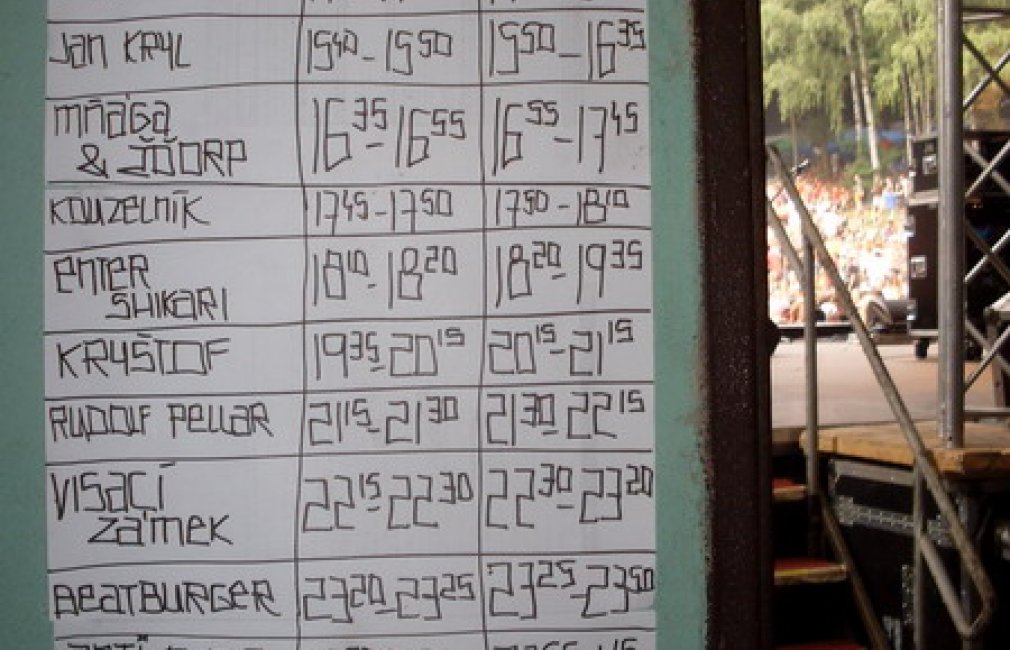 Jan KRYL 15⁴⁰-15⁵⁰ 15⁵⁰-16³⁵
Mňága
& ŽĎORP 16³⁵-16⁵⁵ 16⁵⁵-17⁴⁵
KOUZELNÍK 17⁴⁵-17⁵⁰ 17⁵⁰-18¹⁰
enTER
SHIKARI 18¹⁰-18²⁰ 18²⁰-19³⁵
KRYŠTOF 19³⁵-20¹⁵ 20¹⁵-21¹⁵
RUDOLF PeLLAR 21¹⁵-21³⁰ 21³⁰-22¹⁵
VISaČÍ
Zámek 22¹⁵-22³⁰ 22³⁰-23²⁰
BeaTBURGER 23²⁰-23²⁵ 23²⁵-23⁵⁰